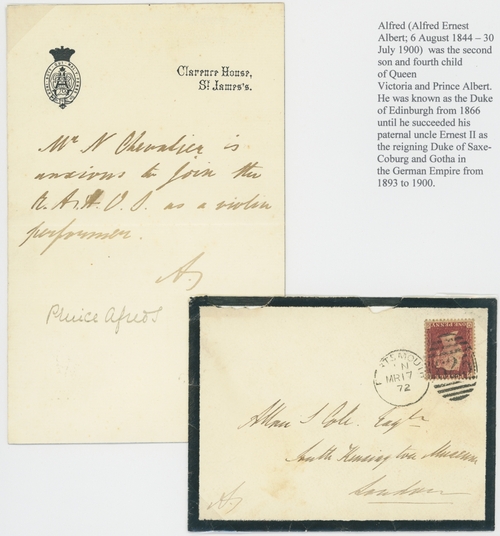 Clarence House,
St. James's.
Mr N Chevalier is
anxious to join the
R. A. H. O. S. as a violin
performer.
A
Prince Alfred's
Alfred (Alfred Ernest
Albert; 6 August 1844 – 30
July 1900) was the second
son and fourth child
of Queen
Victoria and Prince Albert.
He was known as the Duke
of Edinburgh from 1866
until he succeeded his
paternal uncle Ernest II as
the reigning Duke of Saxe-
Coburg and Gotha in
the German Empire from
1893 to 1900.
ONE PENNY
PORTSMOUTH
N
MR 17
72
Allan S Cole. Esqre
South Kensington Museum
London
A